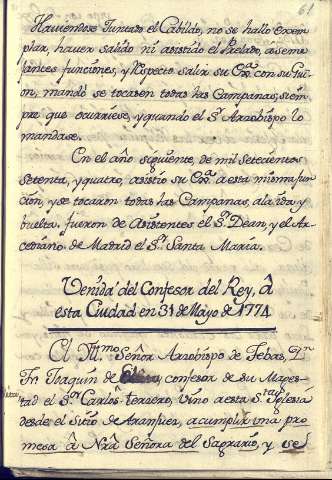 61
Haviendose Juntado el Cabildo, no se hallo exem-
plar, haver salido ni asistido el Prelado, à seme-
jantes funciones, y Respecto salir su Exª. con su Gui-
on, mandó se tocasen todas las Campanas, siem-
pre que ocurriese, y quando el Sr. Arzobispo lo
mandase.
En el año siguiente, de mil setecientos
setenta, y quatro, asistio su Exª. a esta misma fun-
cion, y se tocaron todas las Campanas, ala ida y
buelta. fueron de Asistentes el Sr. Dean, y el Ar-
cediano de Madrid el Sr. Santa Maria.
Venida del Confesor del Rey, â
esta Ciudad en 31 de Mayo de 1774
El Illmo Señor Arzobispo de Tebas, Dn
Fr. Joaquin de confesor de su Mages-
tad el Sr. Carlos tercero, vino a esta Sta. Iglesia
desde el Sitio de Aranjuez, a cumplir una pro
mesa â Nrâ Señora del Sagrario, y se